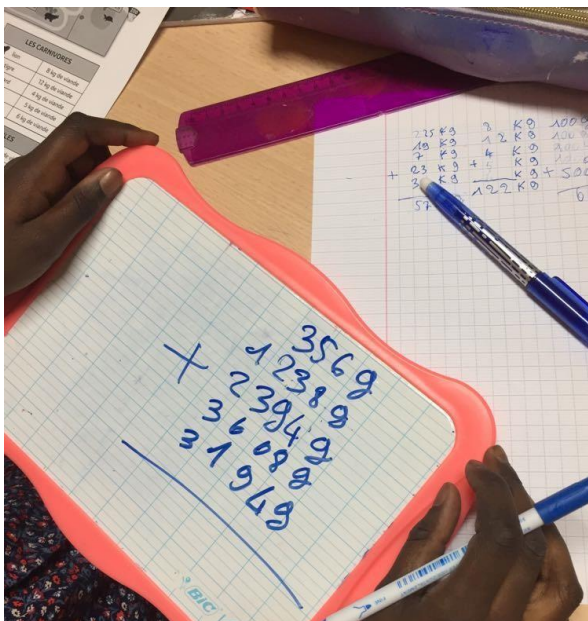 LES CARNIVORES
8 kg de viande
12 kg de viande
4 kg de viande
5 kg de viande
6 kg de viande
225 Kg
19 Kg
7 Kg
+ 23 Kg
57
Kg
12 Kg
4 Kg
+ Kg
Kg
122 Kg
100g
356g
1238g
+ 2394g
3608g
3194g
BiC